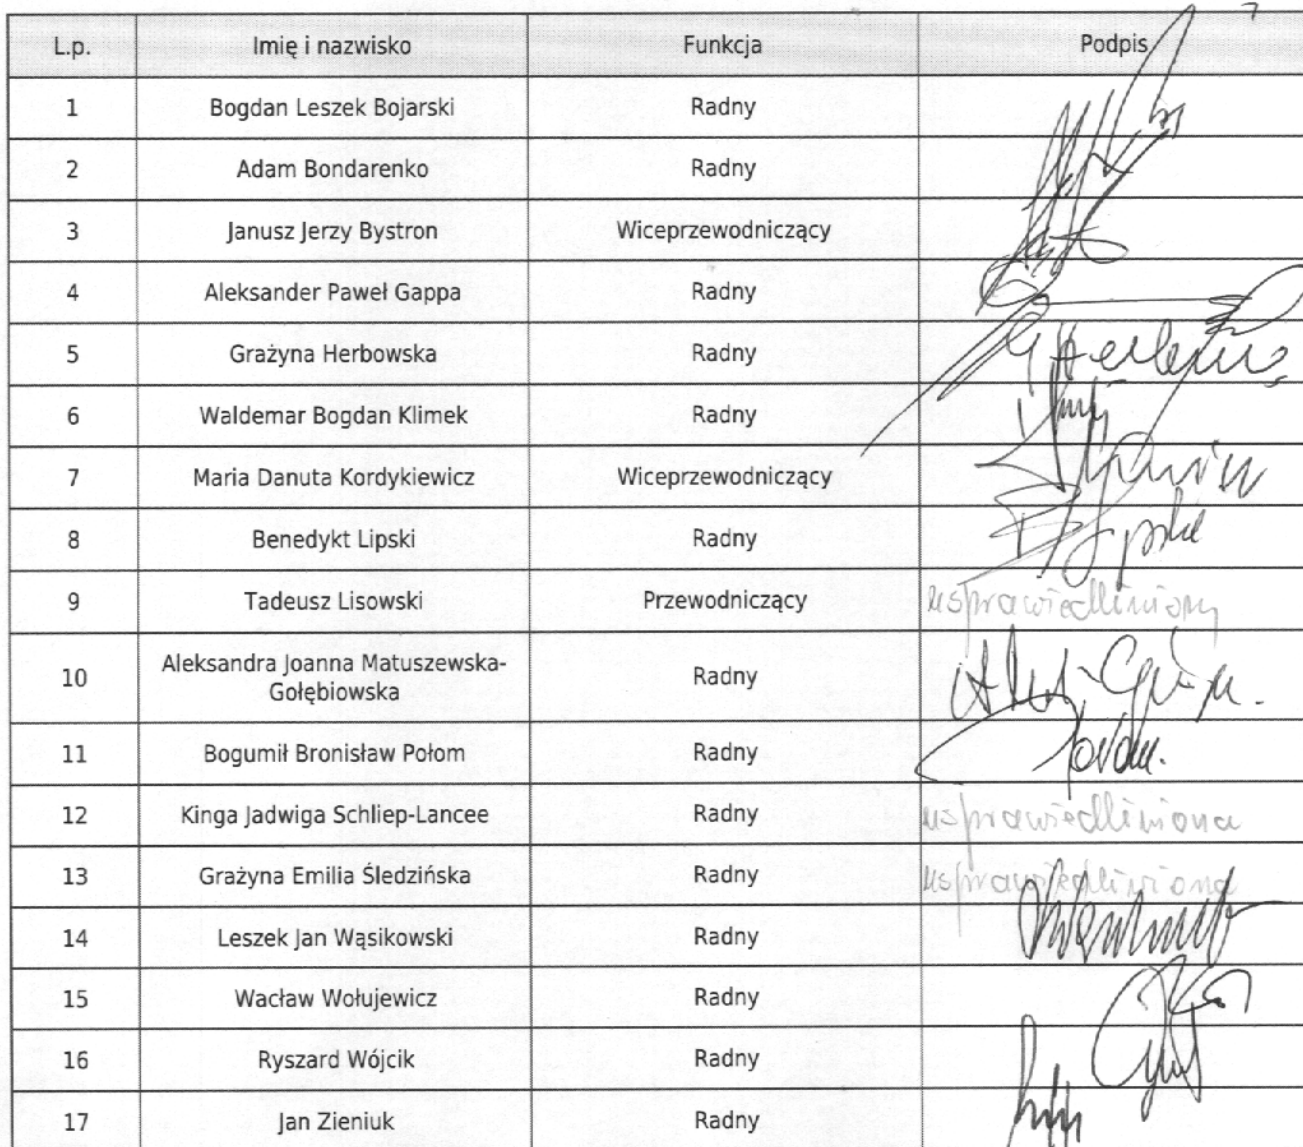 L.p. Imię i nazwisko Funkcja Podpis
1 Bogdan Leszek Bojarski Radny
2 Adam Bondarenko Radny
3 Janusz Jerzy Bystron Wiceprzewodniczący
4 Aleksander Paweł Gappa Radny
5 Grażyna Herbowska Radny
6 Waldemar Bogdan Klimek Radny
7 Maria Danuta Kordykiewicz Wiceprzewodniczący
8 Benedykt Lipski Radny
9 Tadeusz Lisowski Przewodniczący usprawiedliwiony
10 Aleksandra Joanna Matuszewska-
Gołębiowska Radny
11 Bogumił Bronisław Połom Radny
12 Kinga Jadwiga Schliep-Lancee Radny usprawiedliwiona
13 Grażyna Emilia Śledzińska Radny usprawiedliwiona
14 Leszek Jan Wąsikowski Radny
15 Wacław Wołujewicz Radny
16 Ryszard Wójcik Radny
17 Jan Zieniuk Radny